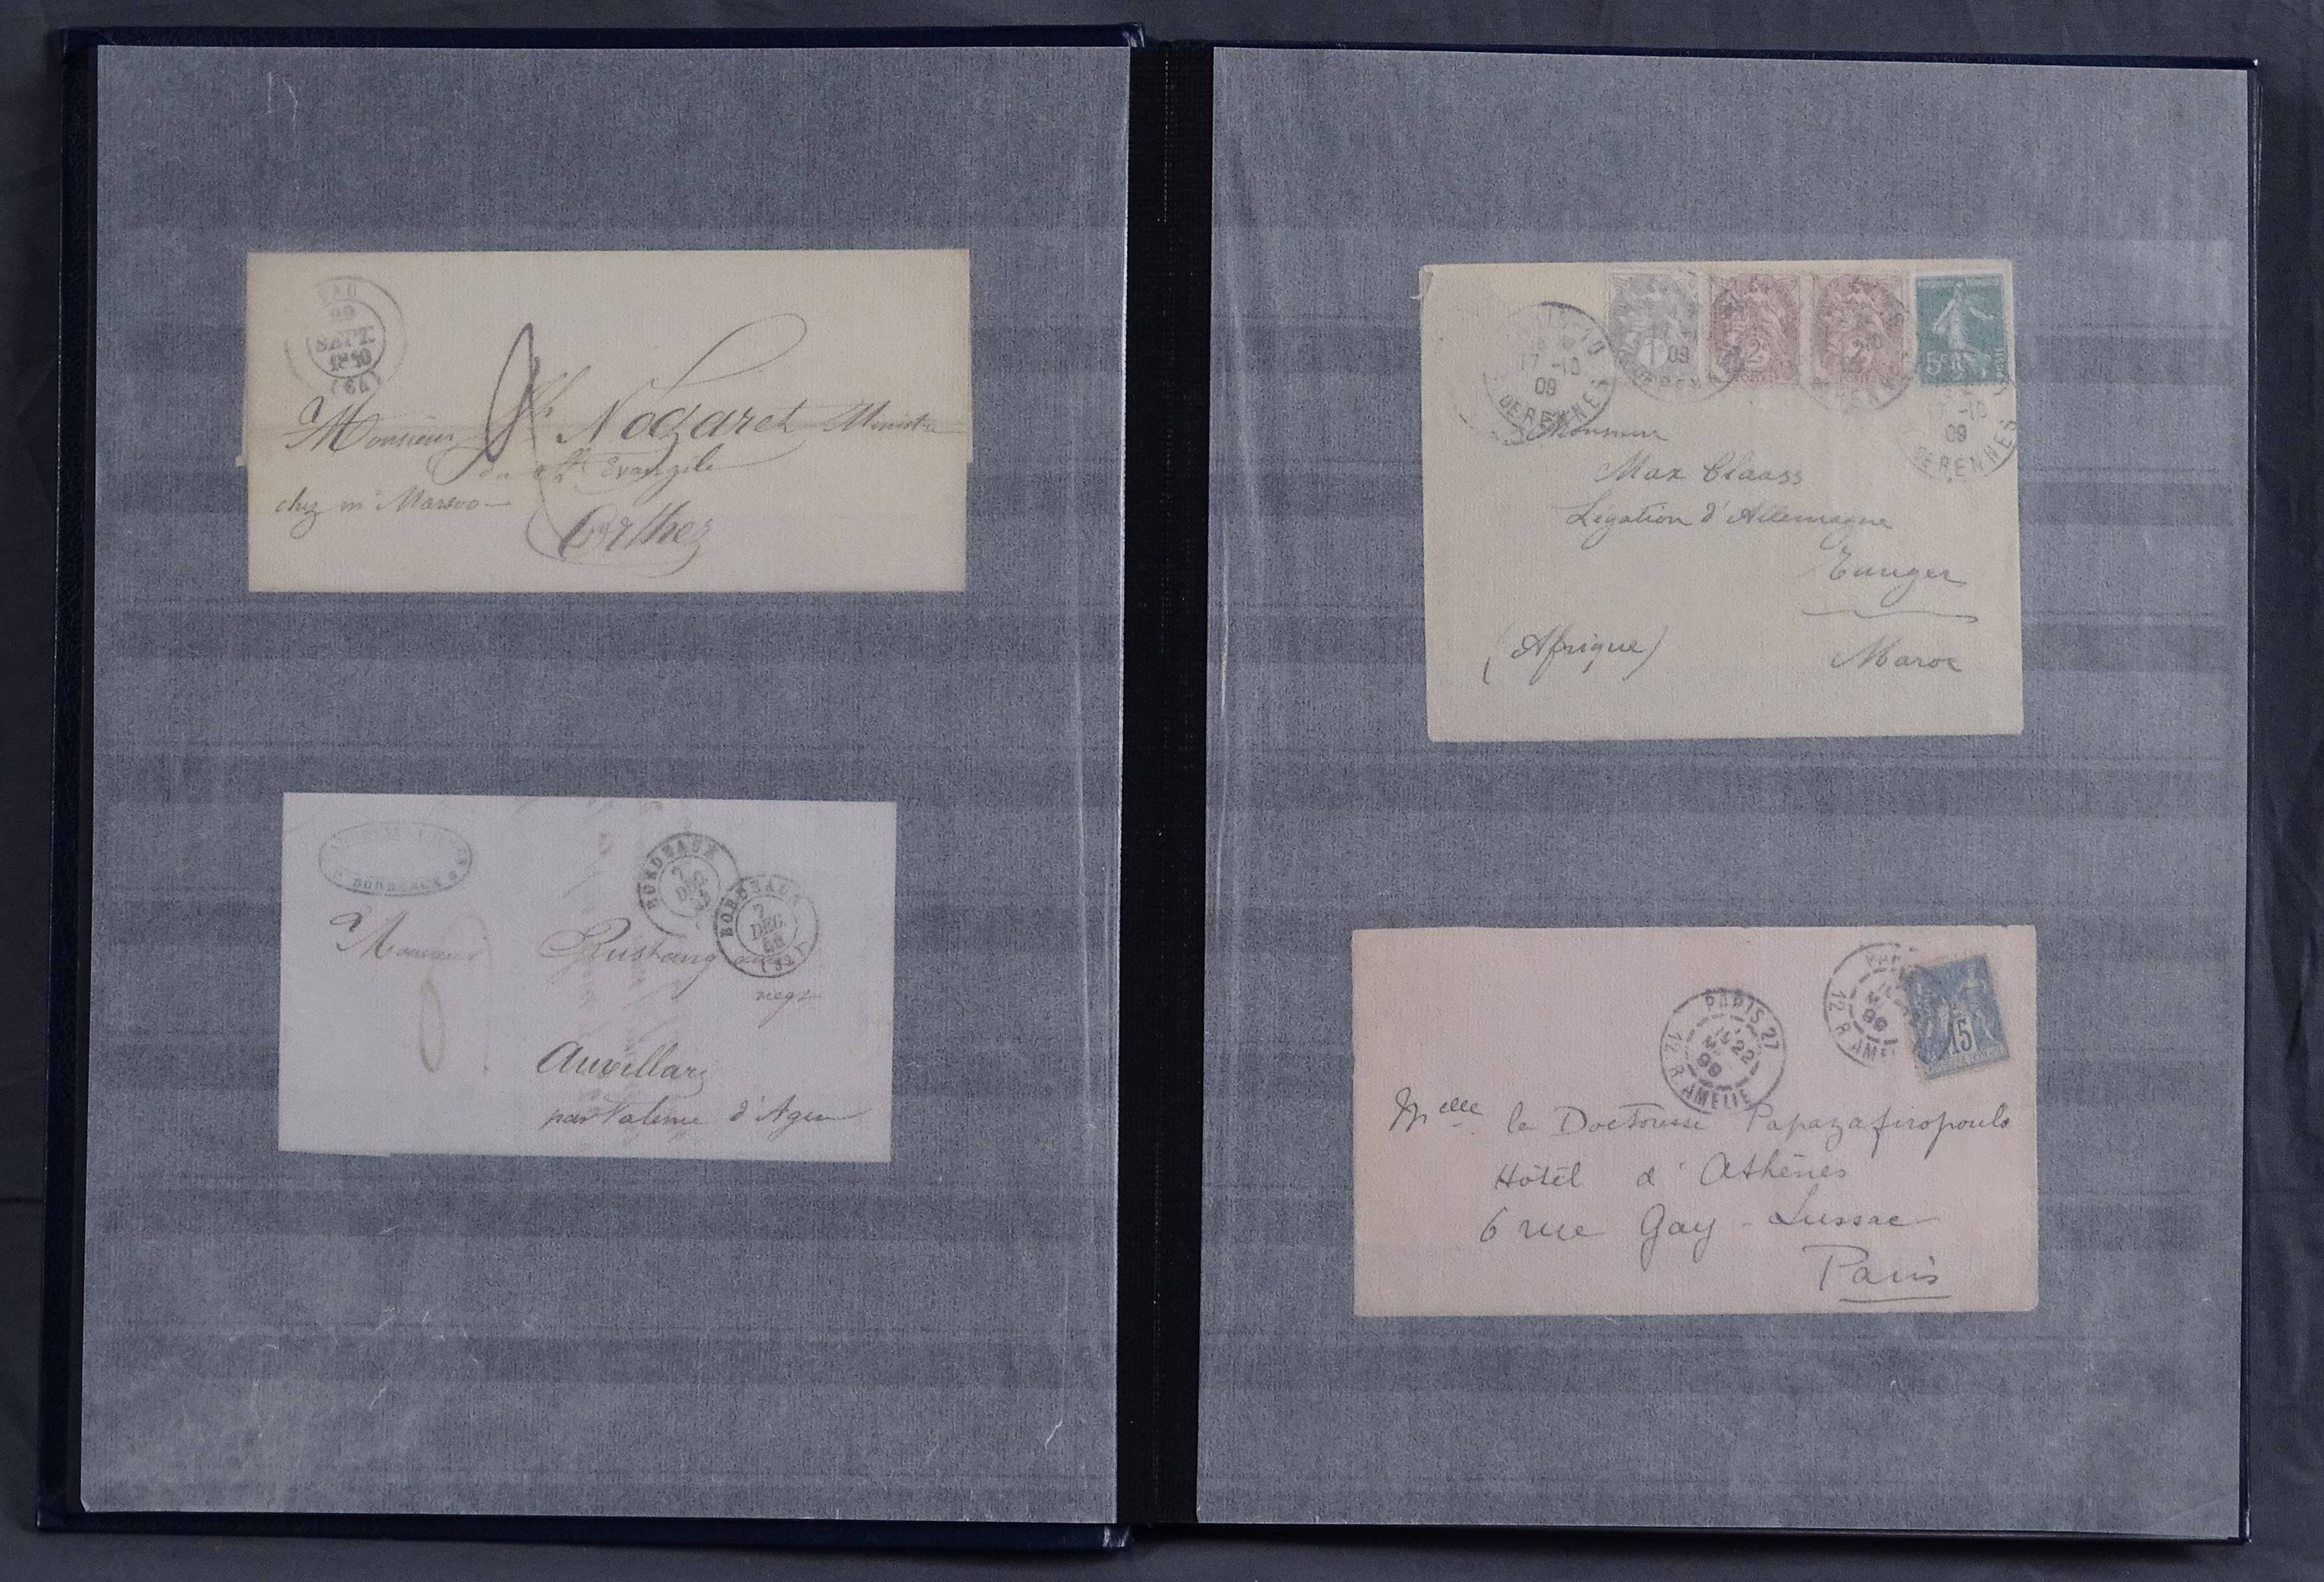 PAU
22
SEPT.
1840
(64)
A
Monsieur Nogaret Ministre
du St Evangile
chez mr Marsoo
Orthez
BORDEAUX
BORDEAUX
7
DEC.
BORDEAUX
7
DEC.
(32)
A
Monsieur Rustang
negt
Auvillar
par Valence d'Agen
17 -10
09
DE RENNES
1c
09
2c
2c
5c
-10
09
DE RENNES
Monsieur
Max Claass
Légation d'Allemagne
Tanger
(Afrique)
Maroc
PARIS 27
22
99
12 R. AMELIE
99
12 R. AME
15
Melle la Doctoresse Papazafiropoulo
Hôtel d'Athènes
6 rue Gay-Lussac
Paris